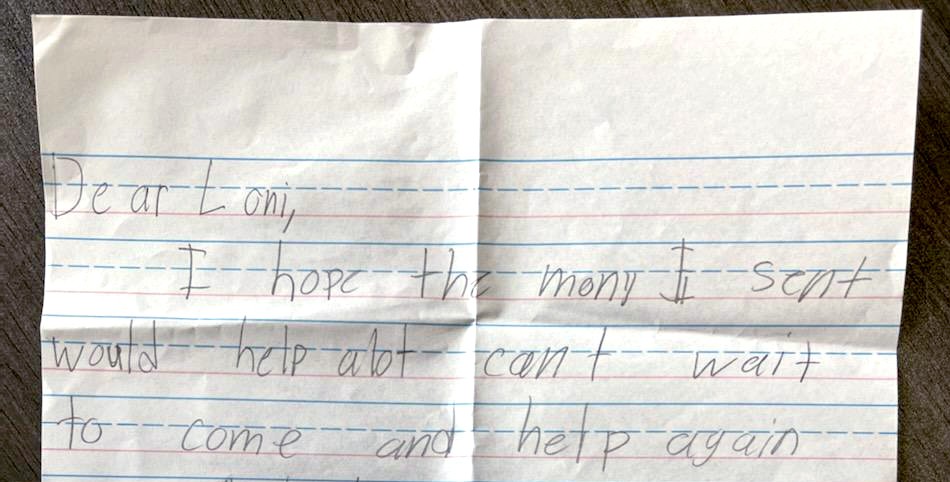 Dear Loni,
I hope the mony I sent
would help alot cant wait
to come and help again